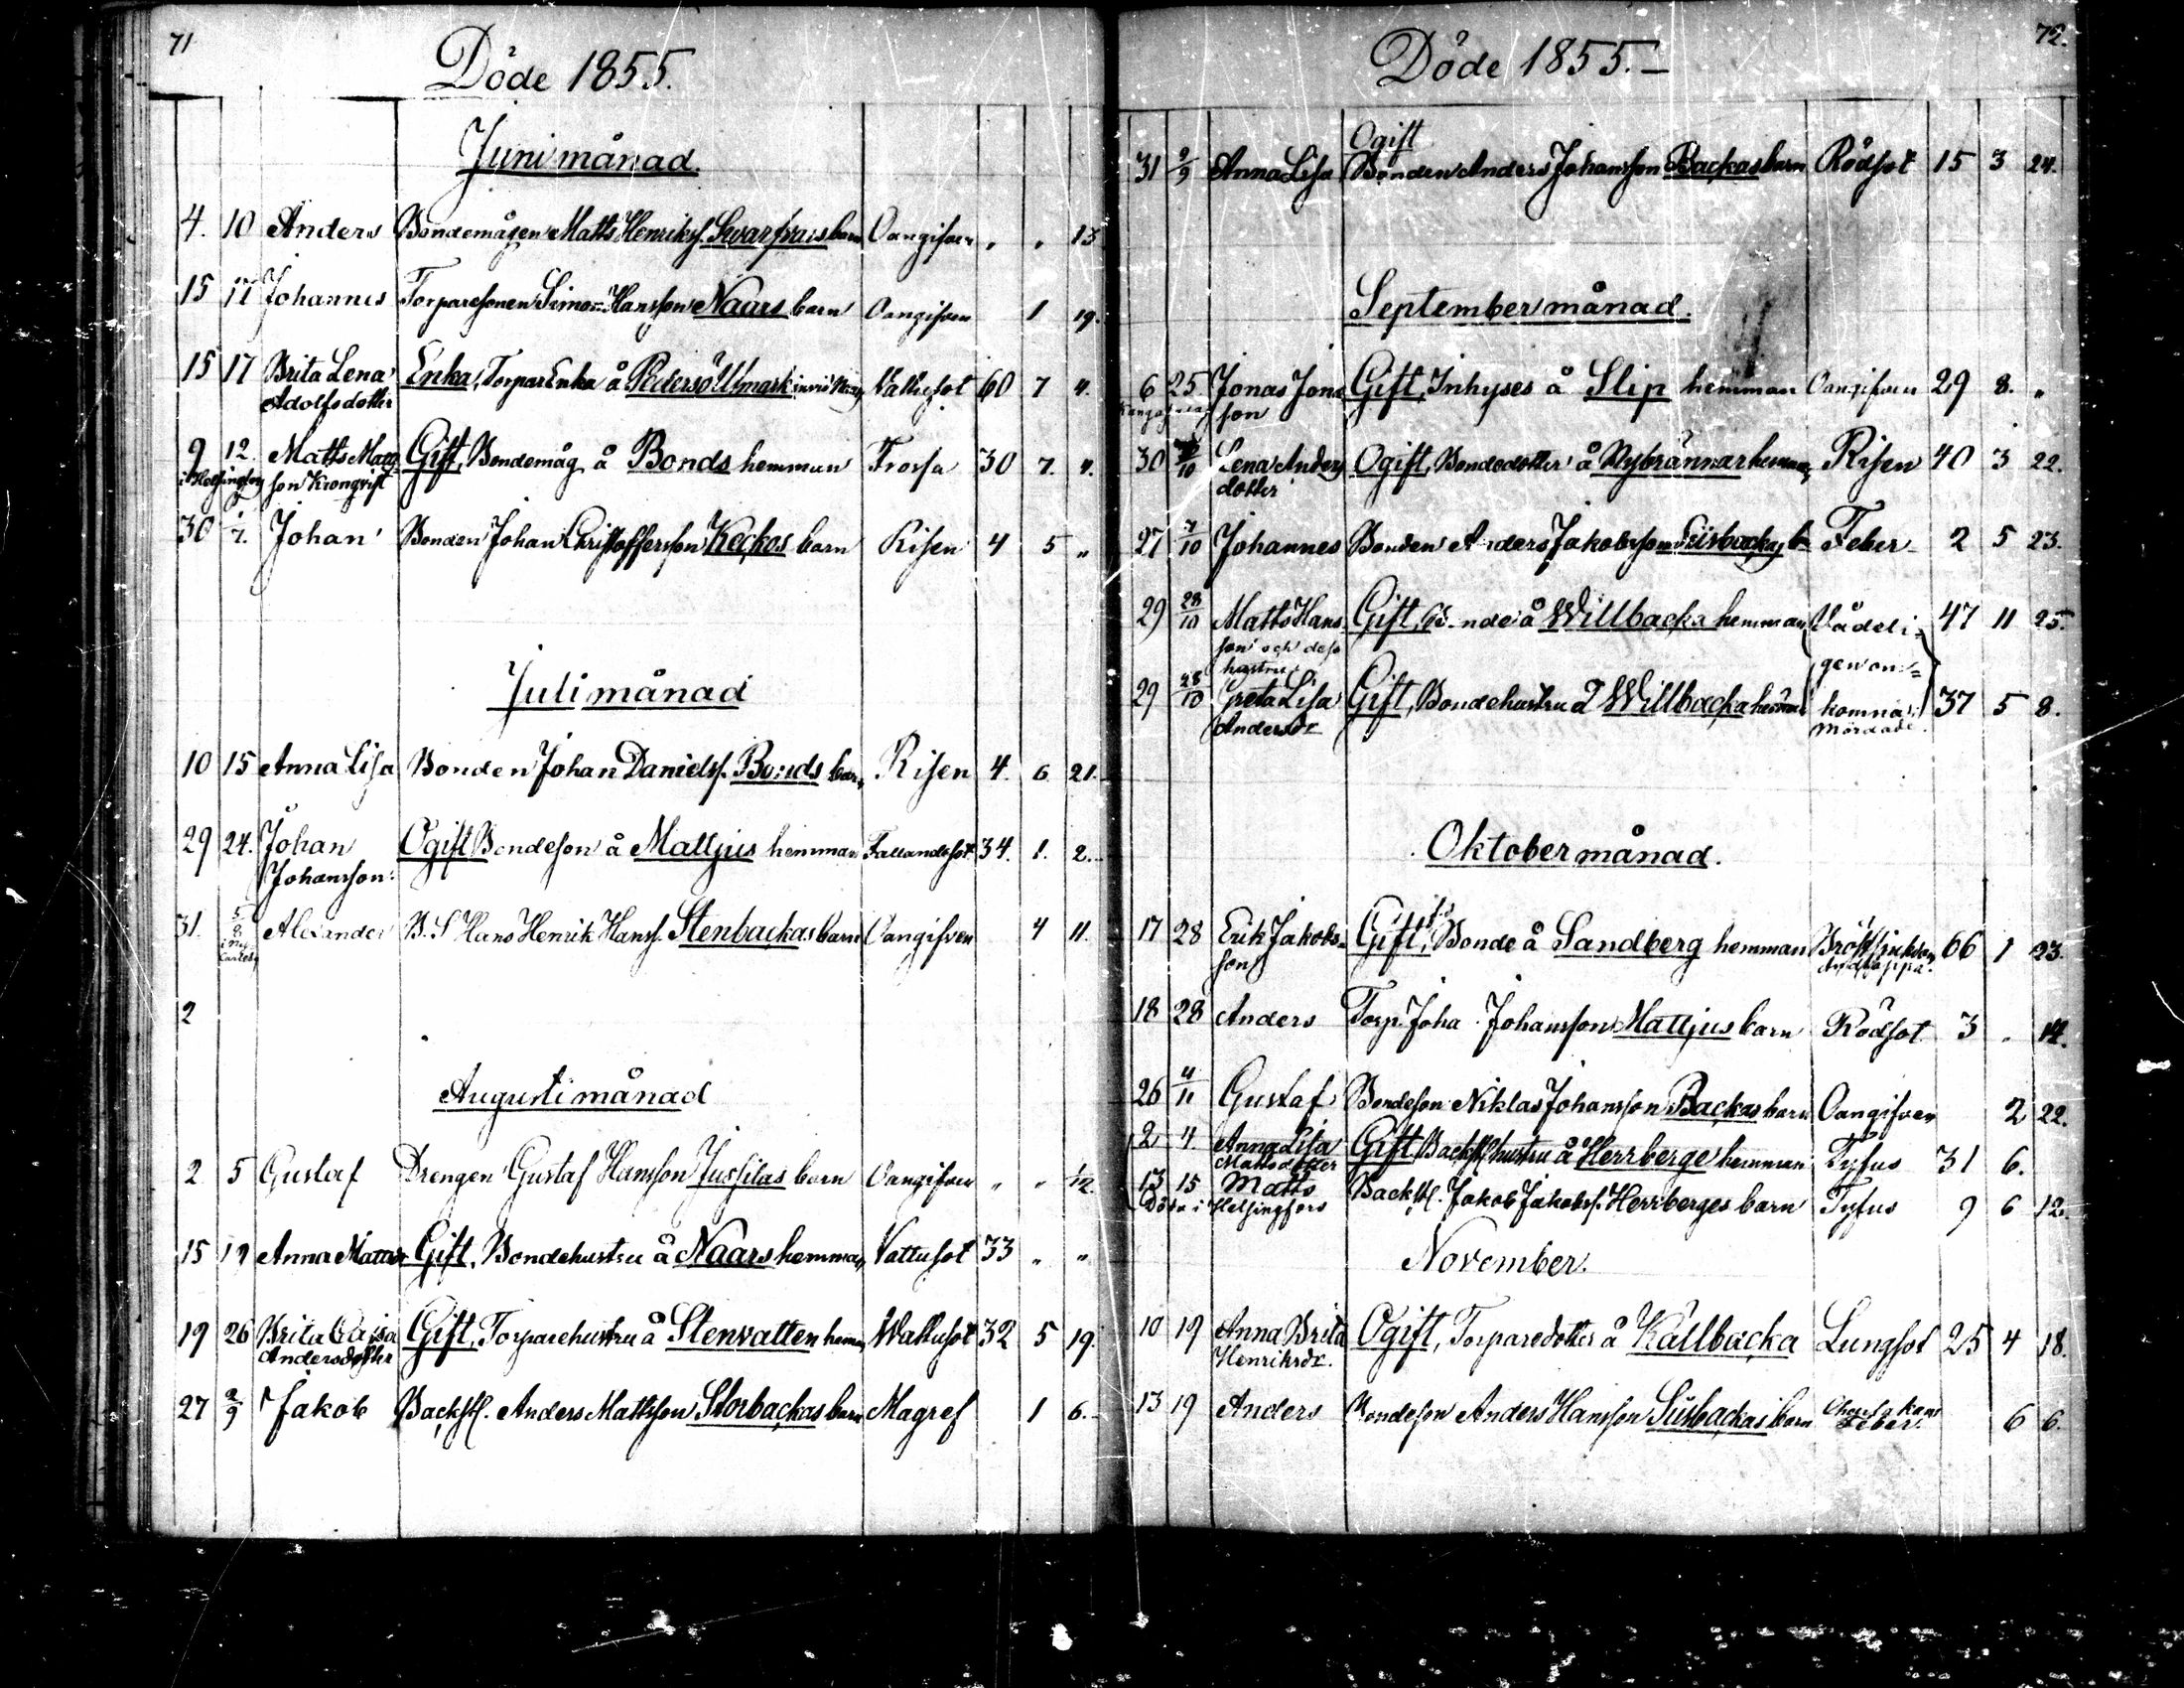 71
Döde 1855.
Juni månad.
4. 10 Anders Bondemågen Matts Henrikss. Svarfvars barn Oangifven " " 13
15 17 Johannes Torparesonen Simon Hansson Naars barn Oangifven 1 19.
15 17 Brita Lena Enka, Torpar Enka å Pedersöllmark Vattusot 60 7 4.
Adolfsdotter
9 12. Matts Matts Gift, Bondemåg å Bonds hemman Frossa 30 7. 4.
i Helsingfors son Kronqvist
30 1/7. Johan Bonden Johan Christoffersson Keckos barn Risen 4 5 "
Juli månad
10 15 Anna Lisa Bonden Johan Danielss. Bonds barn Risen 4. 6. 21.
29 24. Johan Ogift Bondeson å Matljus hemman Fallandesot 34. 1. 2.
Johansson
31. 5/8 Alexander B. S Hans Henrik Hanss. Stenbackas barn Oangifven 4 11.
i Ny Carleby
2
Augusti månad
2 5 Gustaf Drengen Gustaf Hansson Jussilas barn Oangifven " " 1/2.
15 19 Anna Mattsdr Gift, Bondehustru å Naars hemman Vattusot 33 " "
19 26 Brita Cajsa Gift, Torparehustru å Stenvatten hemman Wattusot 32 5 19.
Andersdotter
27 2/9 Jakob Backst. Anders Mattsson Storbackas barn Magref 1 6.
72.
Döde 1855.
Ogift
31 9/9 Anna Lisa Bonden Anders Johansson Backas barn Rödsot 15 3 24.
September månad.
6 25 Jonas Jons Gift, Inhyses å Slip hemman Oangifven 29 8. "
son
30 /10 Lena Anders Ogift, Bondedotter å Nybrännar hemman Risen 40 3 22.
dotter
27 7/10 Johannes Bonden Anders Jakobsson Siisbackas b. Feber 2 5 23.
29 28/10 Matts Hans Gift, Bonde å Willbacka hemman Vådeli= 47 11 25.
son och dess
hustru gen om=
29 28/10 Greta Lisa Gift, Bondehustru å Willbacka hemman komna: 37 5 8.
Andersdr mördade.
Oktober månad.
17 28 Erik Jakobs= Gift, Bonde å Sandberg hemman Bröstsjukdom 66 1 23.
son Andtäppa.
18 28 Anders Torp. Joha. Johansson Matljus barn Rödsot 3 " 14.
26 4/11 Gustaf Bondeson Niklas Johansson Backas barn Oangifven 2 22.
2 4 Anna Lisa Gift Backst. hustru å Herrberge hemman Tyfus 31 6.
Matsdotter
13 15 Matts Backst. Jakob Jakobss. Herrberges barn Tyfus 9 6 12.
Döda i Helsingfors
November.
10 19 Anna Brita Ogift, Torparedotter å Källbacka Lungsot 25 4 18.
Henriksdr.
13 19 Anders Bondeson Anders Hansson Siisbackas barn
Feber. 6 6.